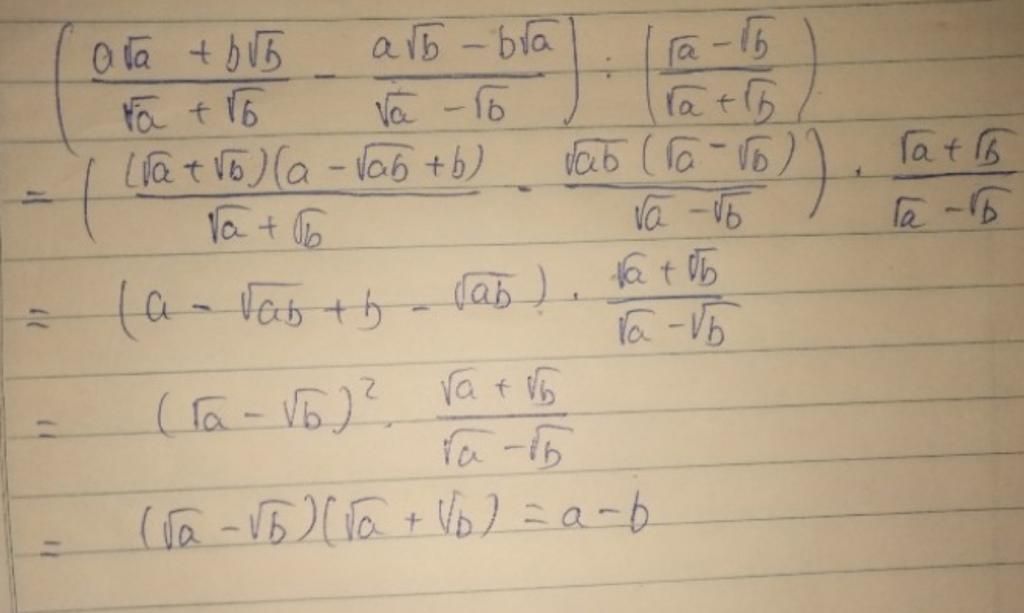 ( (a√a + b√b)/(√a + √b) - (a√b - b√a)/(√a - √b) ) : ( (√a - √b)/(√a + √b) )
= ( ((√a + √b)(a - √ab + b))/(√a + √b) - (√ab (√a - √b))/(√a - √b) ) . (√a + √b)/(√a - √b)
= (a - √ab + b - √ab) . (√a + √b)/(√a - √b)
= (√a - √b)² . (√a + √b)/(√a - √b)
= (√a - √b)(√a + √b) = a - b